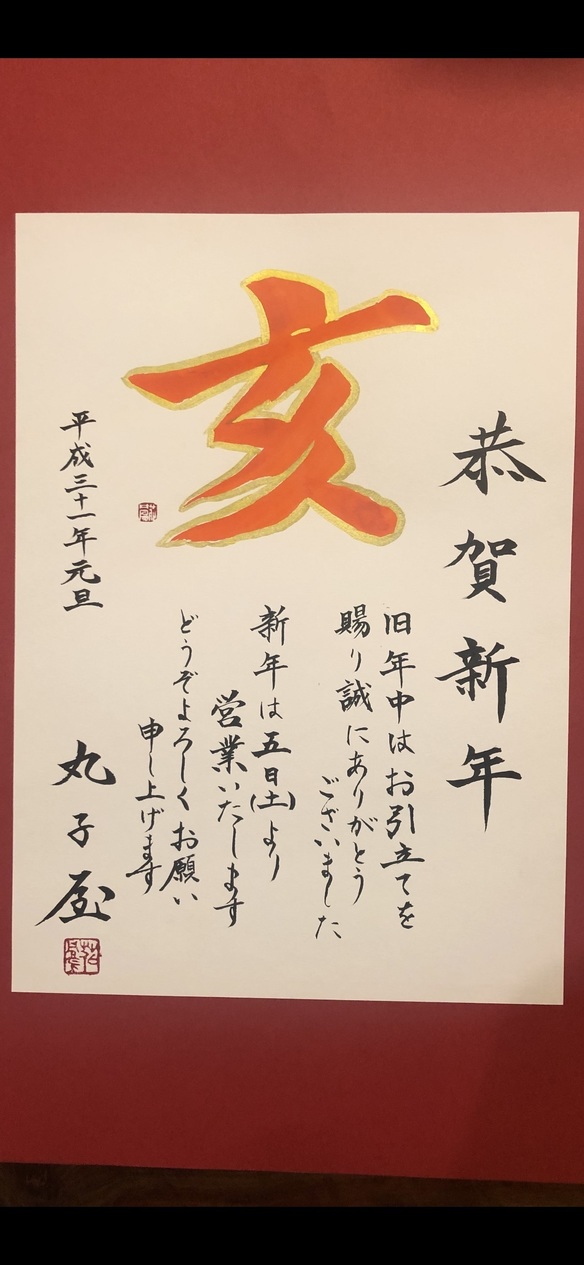 恭賀新年
旧年中はお引立てを
賜り誠にありがとう
ございました
新年は五日(土)より
営業いたします
どうぞよろしくお願い
申し上げます
亥
平成三十一年元旦
丸子屋